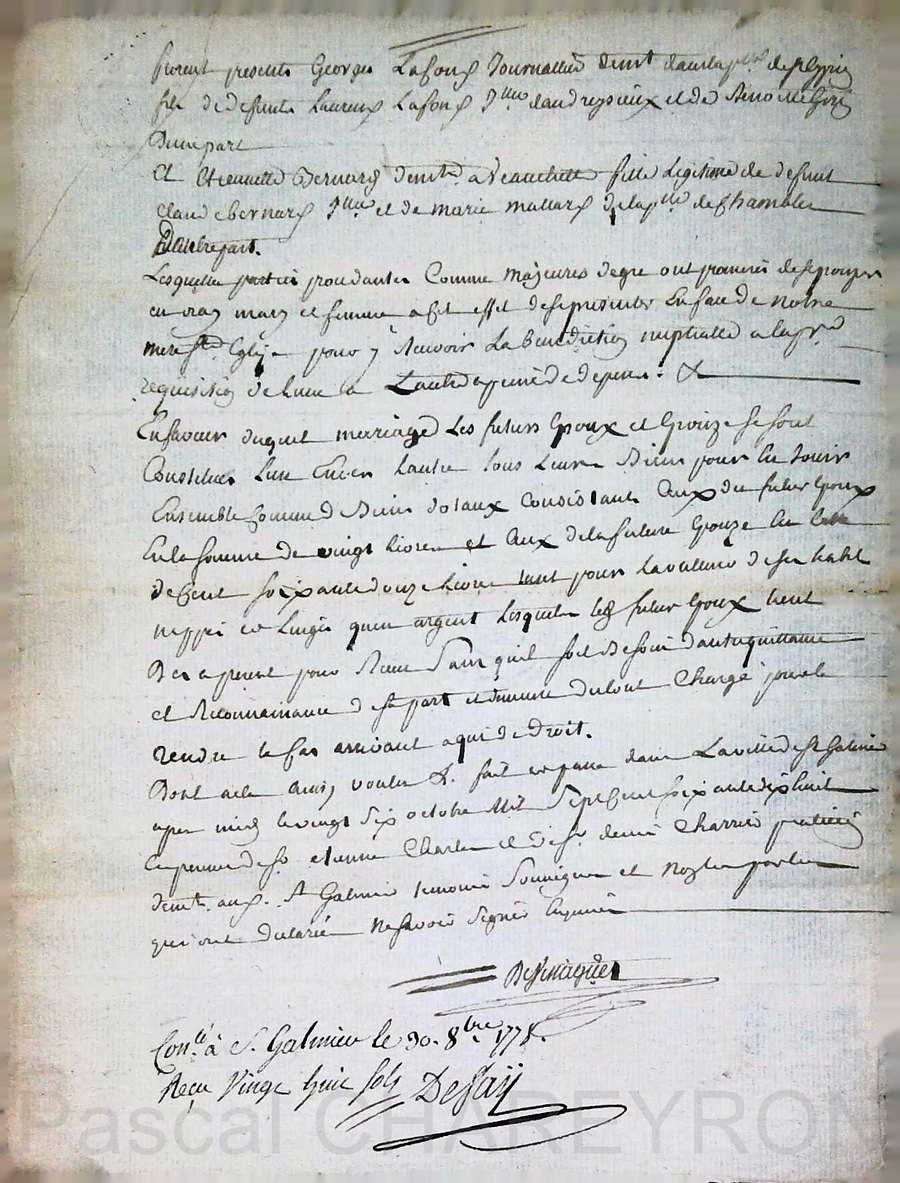 furent presents Georges Lafont Journallier demt dans la psse de
fils de defunt Laurent Lafont Jllier dandrezieux et de
Dune part
Et Etiennette Bernard demte a Veauchette fille Legitime de defunt
Claude bernard Jllier et de marie mallard de la psse de Chambles
Dautre part.
Lesquelles parties procedantes Comme majeures degre ont promis de sepouzer
en vray mary et femme a cet effet de se presenter En face de notre
mere Ste Eglise pour y Recevoir La benediction nuptialle a la pre
requisition de lune a Lautre a peine de depens: &
En faveur duquel mariage Les futurs Epoux et Epouze se sont
Constitues Lun Envers Lautre tous Leurs Biens pour En Jouir
Ensemble Comme de Biens dotaux consistants Ceux du futur Epoux
En la somme de vingt livres et Ceux de la future Epouze En Celle
de Cent soixante douze livres tant pour la valleur de ses habits
nippes et Linges quen argent Lesquels led futur Epoux tient
Des apresent pour Recu Sans quil soit Besoin dautre quittance
et Reconnaissance de sa part et demeure du tout Chargé pour le
rendre le Cas arrivant a qui de droit.
Dont acte Ainsy voulu &. fait et passé dans La ville de St Galmier
apres midy le vingt six octobre Mil Sept Cent soixante dix huit
En presence de Sr. etienne Charles et de Sr. denis Charrier praticiens
demts. aud. St Galmier temoins Soussignes et non les parties
qui ont declaré ne savoir signer Enquis

Conllé à St. Galmier le 30. 8bre 1778.
Reçu Vingt huit sols DeSaÿ
Pascal CHAREYRON